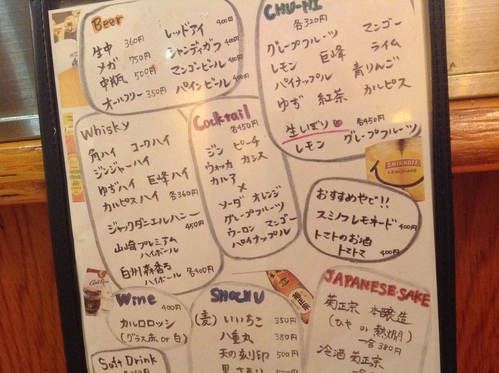 Beer
生中 360円
メガ 750円
中瓶 500円
オールフリー 350円
レッドアイ 400円
シャンディガフ 400円
マンゴービール 400円
パインビール 400円
CHU-HI
各320円
グレープフルーツ マンゴー
レモン 巨峰 ライム
パイナップル 青りんご
ゆず 紅茶 カルピス
生しぼり 各450円
レモン グレープフルーツ
Whisky
角ハイ コークハイ
ジンジャーハイ
ゆずハイ 巨峰ハイ
カルピスハイ 各360円
ジャックダニエルハニー 450円
山崎プレミアム
ハイボール
白州森香る
ハイボール 各400円
Cocktail
各450円
ジン ピーチ
ウォッカ カシス
カルア
×
ソーダ オレンジ
グレープフルーツ
ウーロン マンゴー
パイナップル
SMIRNOFF
LEMONADE
おすすめやで!!
スミノフレモネード
400円
トマトのお酒
トマトマ 400円
Wine 400円
カルロロッシ
(グラス赤 or 白)
Soft Drink
SHOCHU
(麦) いいちこ 350円
八重丸 380円
天の刻印 500円
JAPANESE SAKE
菊正宗 本醸造
(ひや or 熱燗)
一合 380円
冷酒 菊正宗